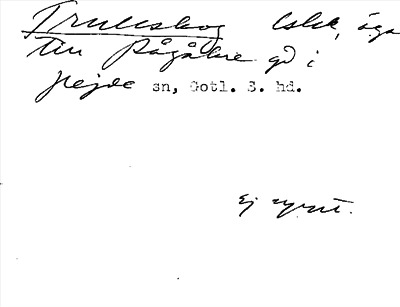 Trullskog lslse, äga
till Pågåkre gd i
Hejde sn, Gotl. S. hd.
Ej synt.